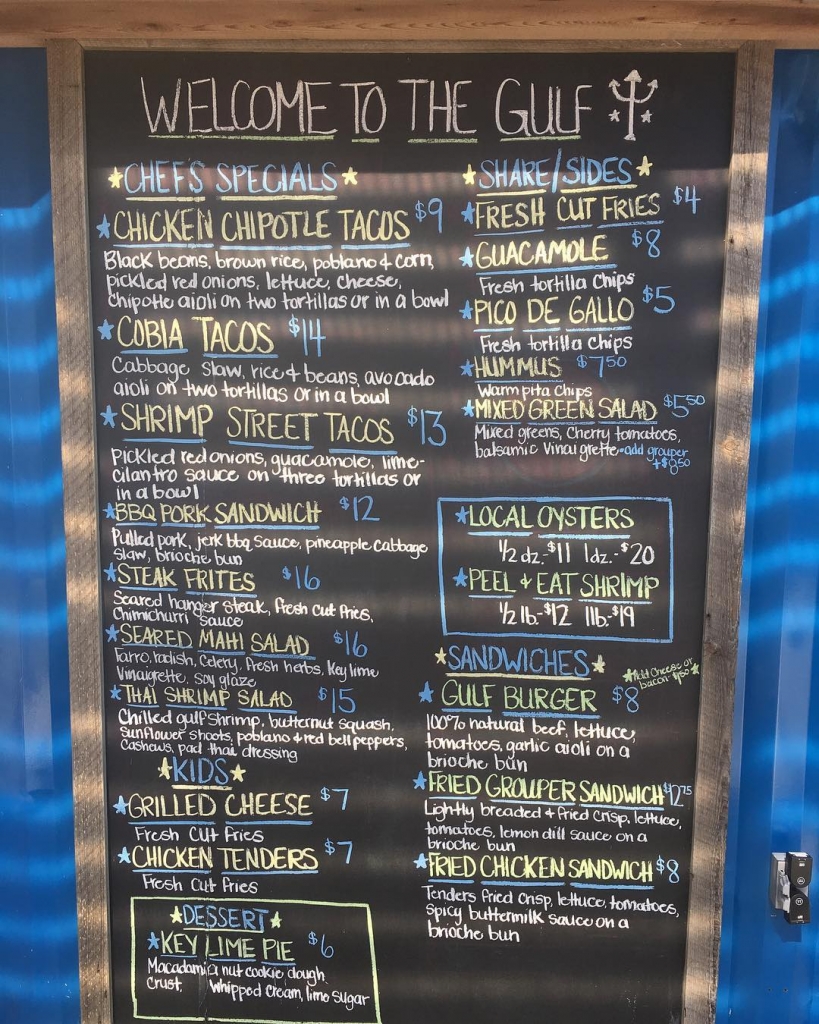 WELCOME TO THE GULF
CHEF'S SPECIALS
CHICKEN CHIPOTLE TACOS $9
Black beans, brown rice, poblano & corn,
pickled red onions, lettuce, cheese,
chipotle aioli on two tortillas or in a bowl
COBIA TACOS $14
Cabbage slaw, rice & beans, avocado
aioli on two tortillas or in a bowl
SHRIMP STREET TACOS $13
Pickled red onions, guacamole, lime-
cilantro sauce on three tortillas or
in a bowl
BBQ PORK SANDWICH $12
Pulled pork, jerk bbq sauce, pineapple cabbage
slaw, brioche bun
STEAK FRITES $16
Seared hanger steak, fresh cut fries,
Chimichurri sauce
SEARED MAHI SALAD $16
Farro, radish, celery, fresh herbs, key lime
Vinaigrette, soy glaze
THAI SHRIMP SALAD $15
Chilled gulf shrimp, butternut squash,
sunflower shoots, poblano & red bell peppers,
cashews, pad thai dressing
KIDS
GRILLED CHEESE $7
Fresh Cut Fries
CHICKEN TENDERS $7
Fresh Cut Fries
DESSERT
KEY LIME PIE $6
Macadamia nut cookie dough
crust, whipped cream, lime sugar
SHARE/SIDES
FRESH CUT FRIES $4
GUACAMOLE $8
Fresh tortilla chips
PICO DE GALLO $5
Fresh tortilla chips
HUMMUS $7.50
Warm pita chips
MIXED GREEN SALAD $5.50
Mixed greens, cherry tomatoes,
balsamic vinaigrette - add grouper
+$8.50
LOCAL OYSTERS
1/2 dz.-$11 1dz.-$20
PEEL & EAT SHRIMP
1/2 lb-$12 1lb-$19
SANDWICHES
*Add cheese or
bacon $1.50
GULF BURGER $8
100% natural beef, lettuce,
tomatoes, garlic aioli on a
brioche bun
FRIED GROUPER SANDWICH $12.75
Lightly breaded & fried crisp, lettuce,
tomatoes, lemon dill sauce on a
brioche bun
FRIED CHICKEN SANDWICH $8
Tenders fried crisp, lettuce, tomatoes,
spicy buttermilk sauce on a
brioche bun